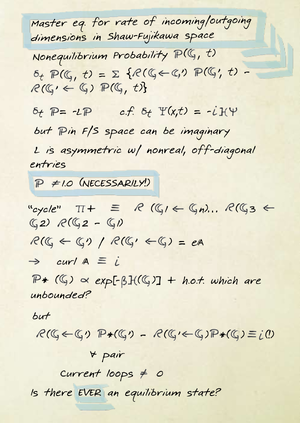 Master eq. for rate of incoming/outgoing
dimensions in Shaw-Fujikawa space
Nonequilibrium Probability ℙ(𝔾, t)
δt ℙ(𝔾, t) = Σ {R(𝔾←𝔾') ℙ(𝔾', t) -
R(𝔾' ← 𝔾) ℙ(𝔾, t)}
δt ℙ= -Lℙ c.f. δt Ψ(x,t) = -iℍΨ
but ℙ in F/S space can be imaginary
L is asymmetric w/ nonreal, off-diagonal
entries
ℙ ≠1.0 (NECESSARILY!)
"cycle" Π+ ≡ R (𝔾1 ← 𝔾n)... R(𝔾3 ←
𝔾2) R(𝔾2 - 𝔾1)
R(𝔾 ← 𝔾') / R(𝔾' ← 𝔾) = eA
→ curl A ≡ i
ℙ* (𝔾) ∝ exp[-βℍ(𝔾)] + h.o.t. which are
unbounded?
but
R(𝔾←𝔾') ℙ*(𝔾') - R(𝔾'←𝔾)ℙ*(𝔾) ≡ i(!)
∀ pair
Current loops ≠ 0
Is there EVER an equilibrium state?